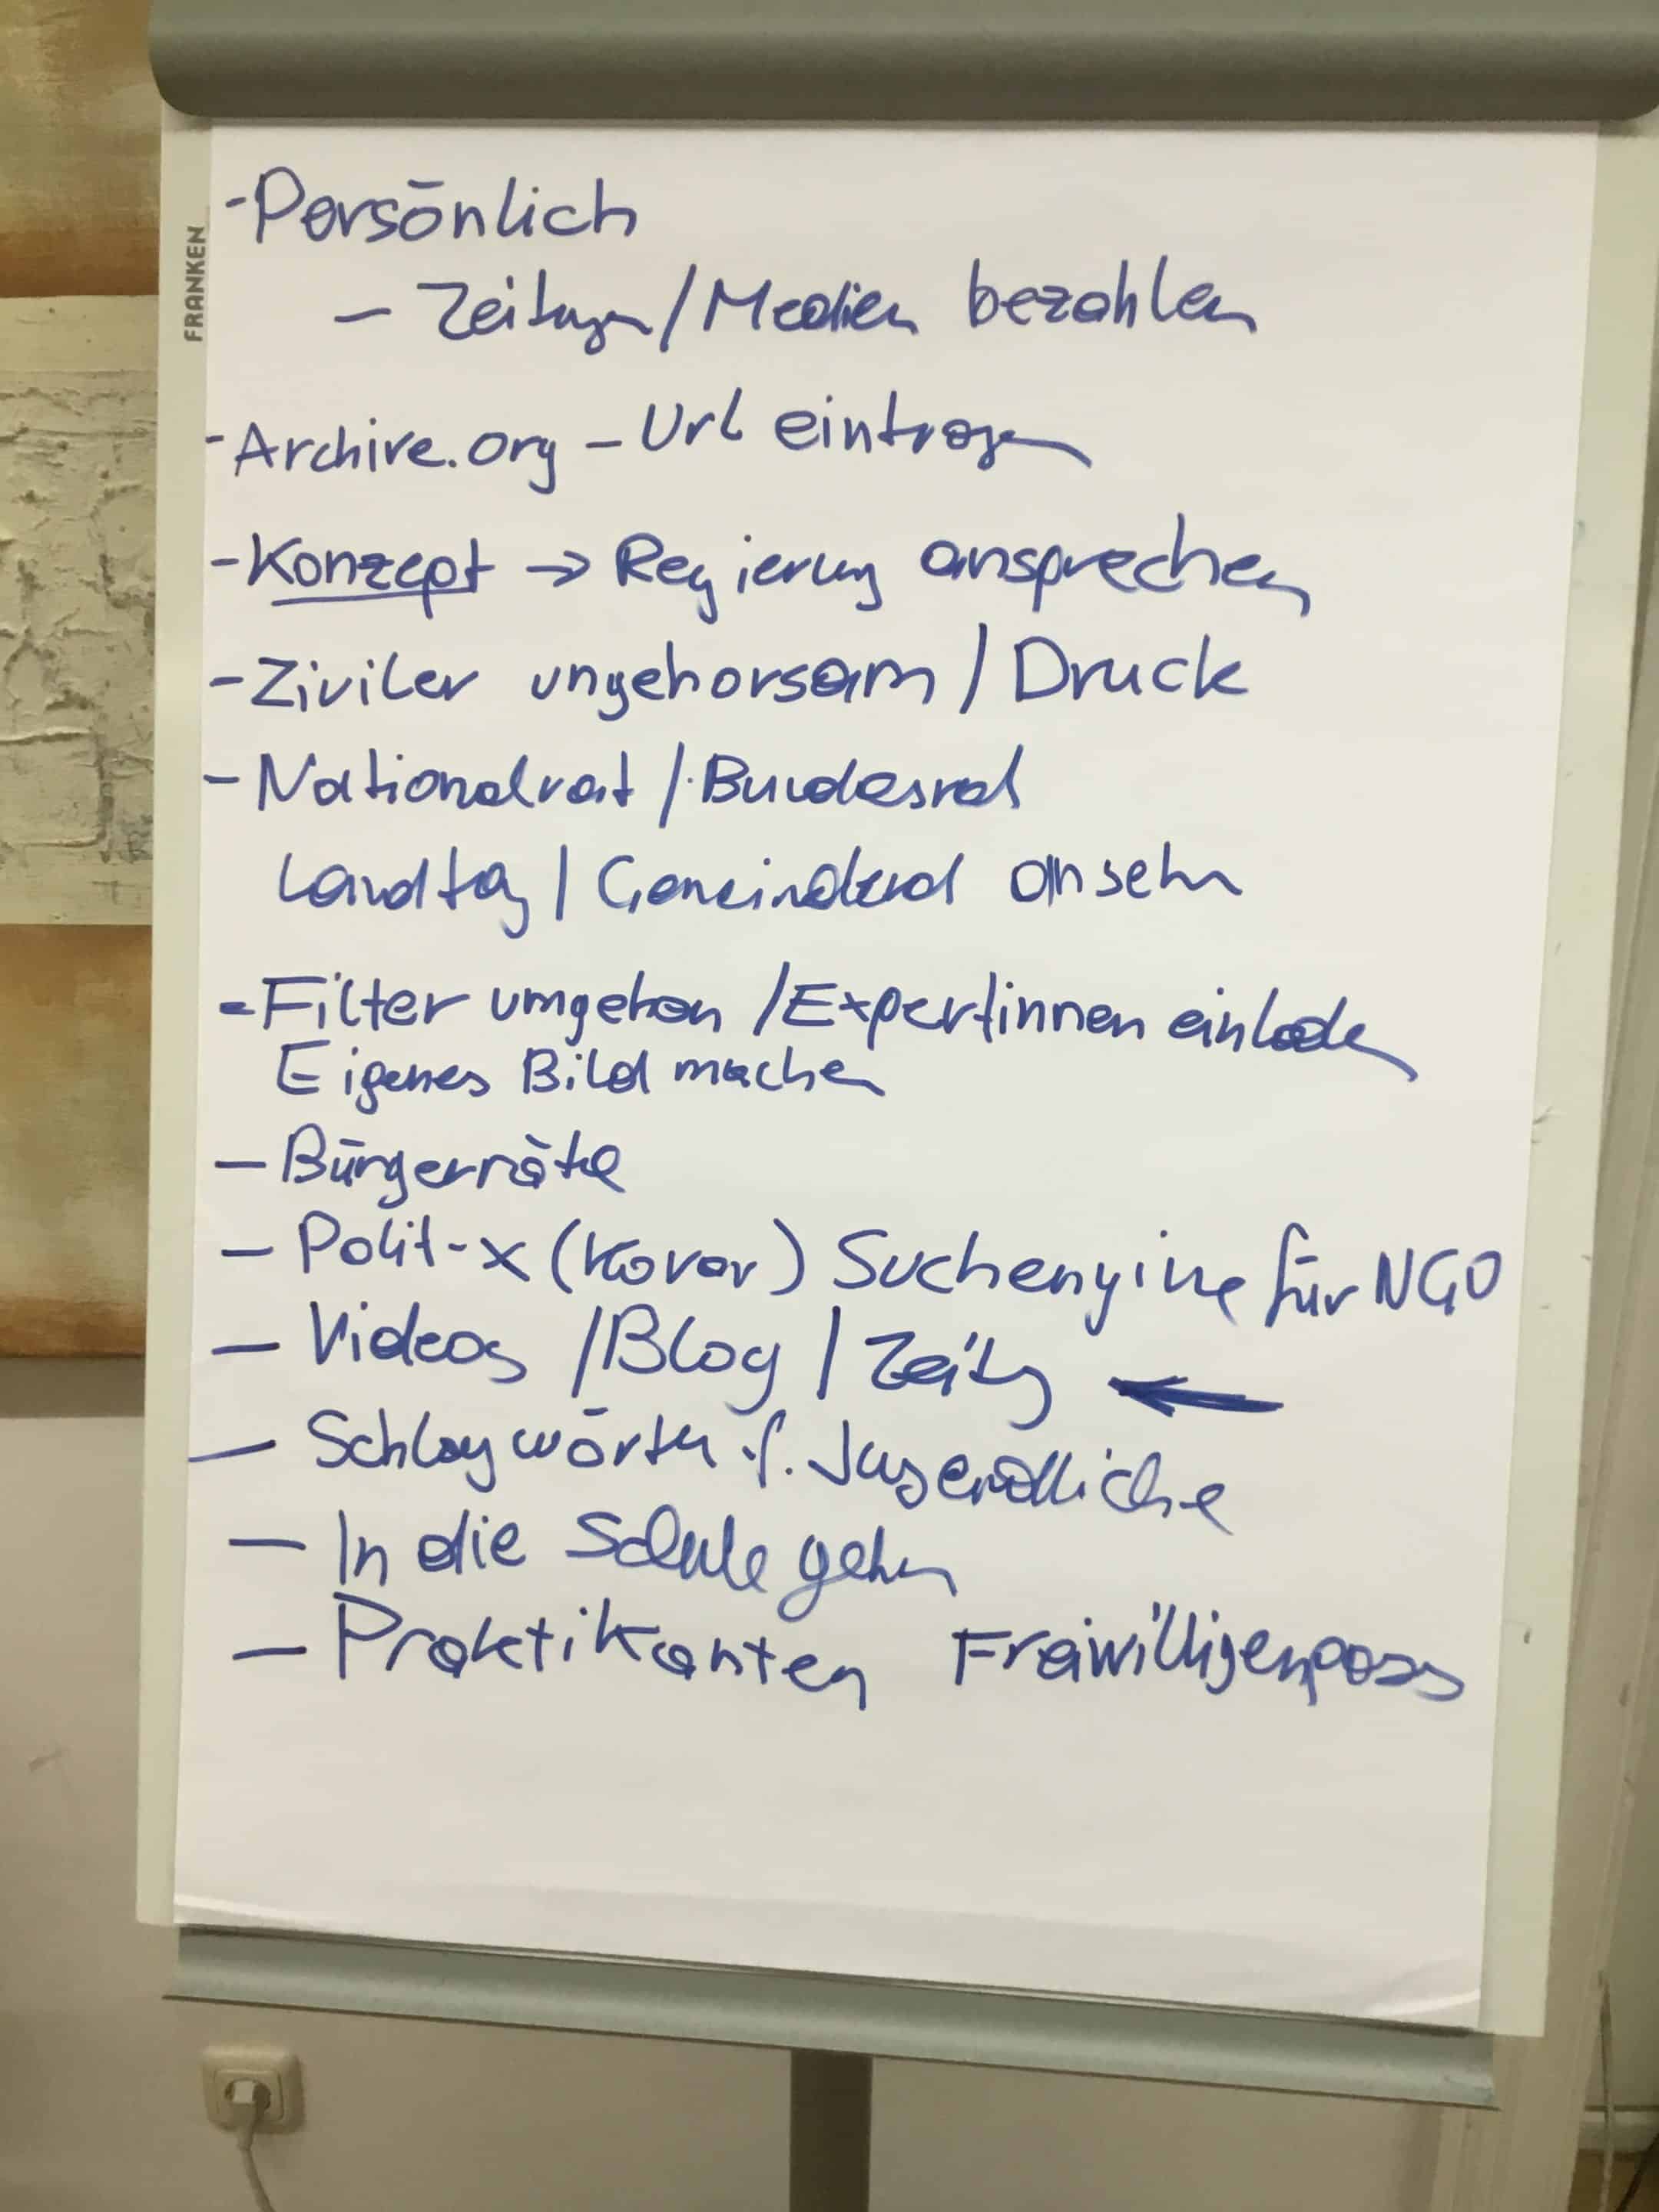 FRANKEN
- Persönlich
- Zeitungen / Medien bezahlen
- Archive.org - Url eintragen
- Konzept → Regierung ansprechen
- Ziviler ungehorsam / Druck
- Nationalrat / Bundesrat
Landtag / Gemeinderat ansehn
- Filter umgehen / Expertinnen einladen
Eigenes Bild machen
- Bürgerräte
- Polit-x (Kovar) Suchengine für NGO
- Videos / Blog / Zeitg ←
- Schlagwörter f. Jugendliche
- In die Schule gehen
- Praktikanten Freiwilligenpass